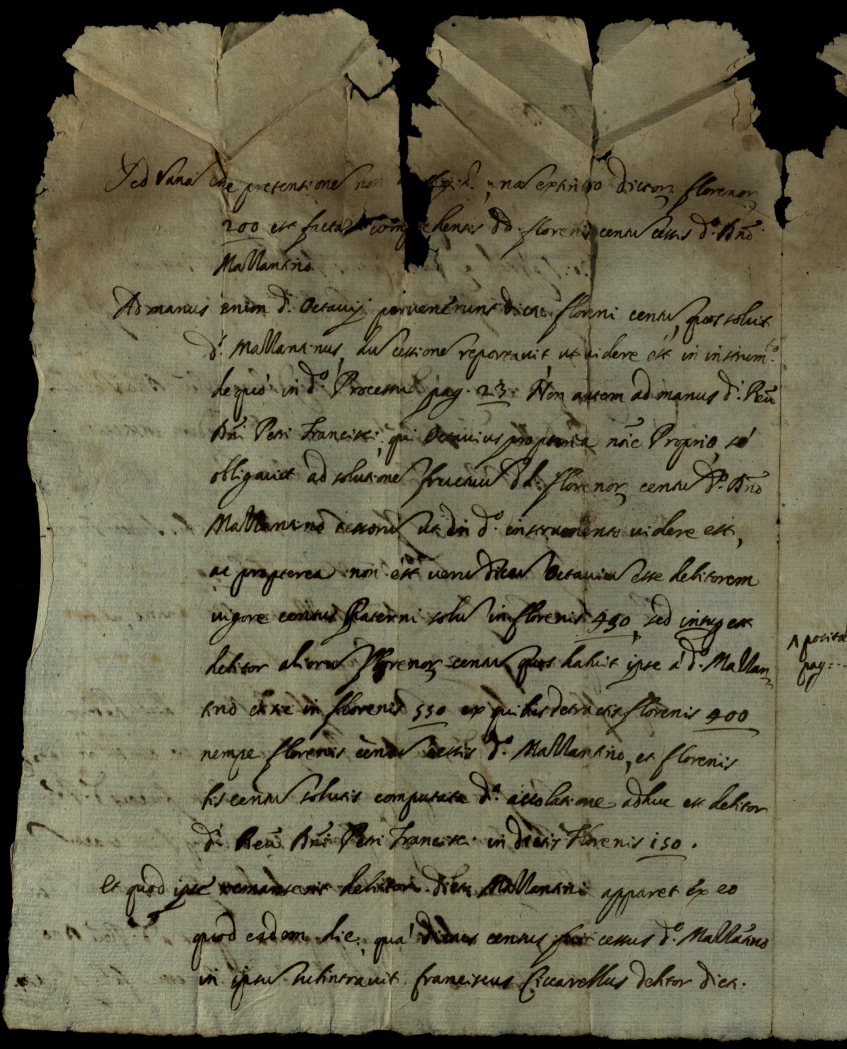 Sed vana est pretentione non nã extintio dictorȝ florenorȝ
200 est facta comprehensis dd. florenis centu cessis d.º Bñõ
Mallantino
Ad manus enim d. Octavij pervenerunt dicti floreni centu, quos soluit
d. Mallantinus, du cessione reportauit ut uidere est in instrumto
de quo in d.º Processu pag. 23. Non autem ad manus d. Reu
Bñi Petri Francisci, qui Octavius propterea nõie Proprio, se
obligauit ad solutione fructuu dd. florenorȝ centu d.º Bñõ
Mallantino cessoru ut in d.º instrumento uidere est,
ac propterea non est veru dictu Octaviu esse debitorem
uigore census Paterni solu in florenis 450, sed
debitor alioru florenorȝ centu quos habuit ipse a d.º Mallan-
tino in florenis 550 ex quibus detractis florenis 400
nempe florenis centu cessis d.º Mallantino, et florenis
centu solutis computata d.ª adhuc est debitor
d. Reu Bñi Petri Francisci in dictis florenis 150.
Et quod ipse remanserit debitor dicti Mallantini apparet ex eo
quod eadem die, qua dictus census fuit cessus d.º Mallãtino
in ipsu subintrauit franciscus Ciccarellus debitor dict.
posita
pag: